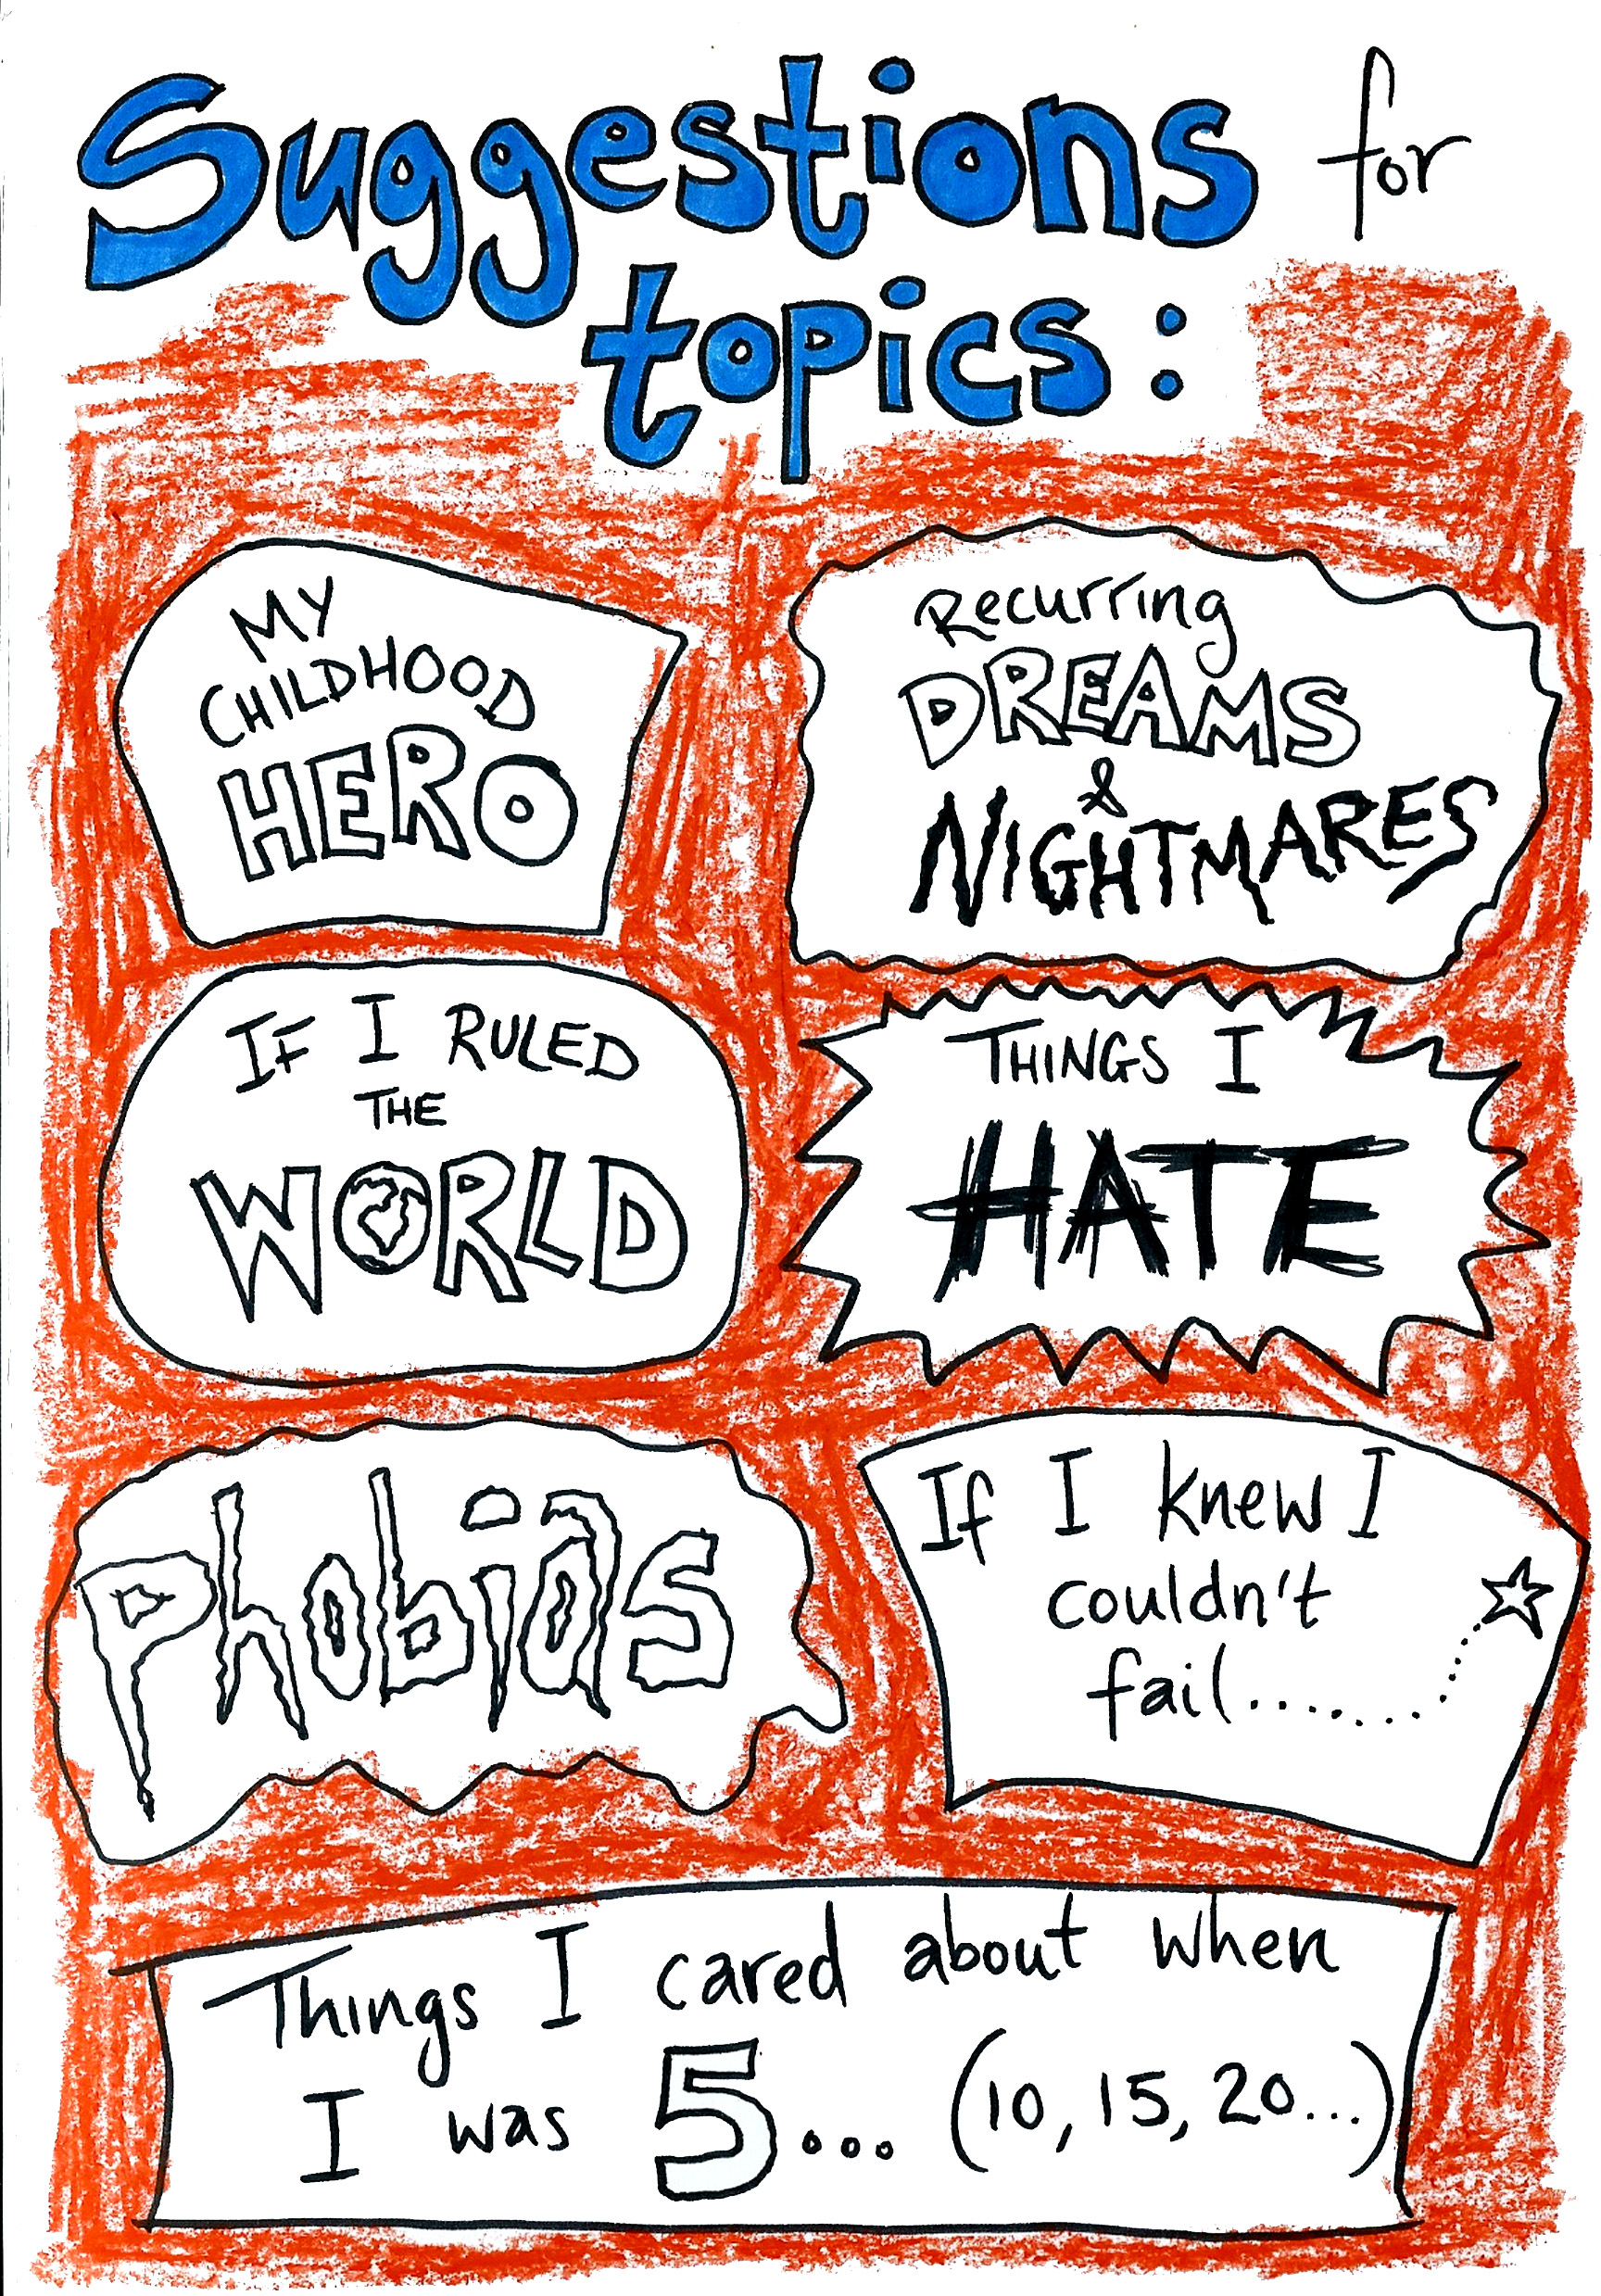 Suggestions for
topics:
MY
CHILDHOOD
HERO
Recurring
DREAMS
&
NIGHTMARES
IF I RULED
THE
WORLD
THINGS I
HATE
Phobias
If I knew I
couldn't
fail.......
Things I cared about when
I was 5... (10, 15, 20...)